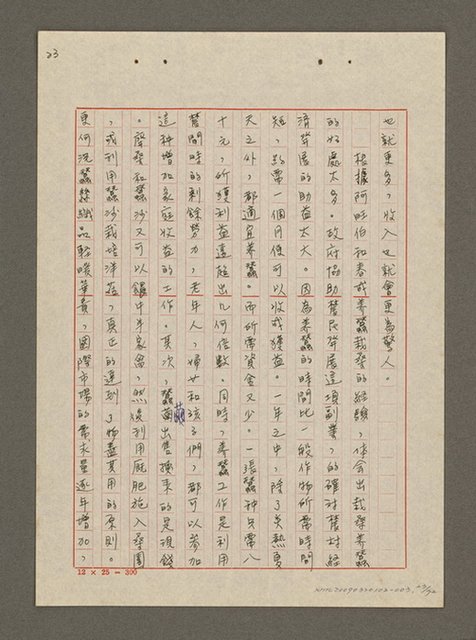 23
也就更多,收入也就會更為驚人。
根據阿旺伯和春成養蠶栽桑的經驗,体會出栽桑養蠶
的好處太多。政府協助農民發展這項副業,的確對農村經
濟發展的助益太大。因為養蠶的時間比一般作物所需時間
短,約需一個月便可以收成獲益。一年之中,除了炎熱夏
天之外,都適宜養蠶。而所需資金又少。一張蠶种只需八
十元,所獲利益遠超出几何倍數。同時,養蠶工作是利用
農閒時的剩餘勞力,老年人,婦女和孩子們,都可以參加
這种增加家庭收益的工作。其次,蠶繭出售換來的是現錢
。廢桑和蠶沙又可以飼牛羊家禽,然後利用厩肥施入桑園
,或利用蠶沙栽培洋菇,真正的達到了物盡其用的原則。
更何況蠶絲織品輕暖華貴,國際市場的需求量逐年增加,
12 × 25 = 300
NMTL20090320102-003, 23/72